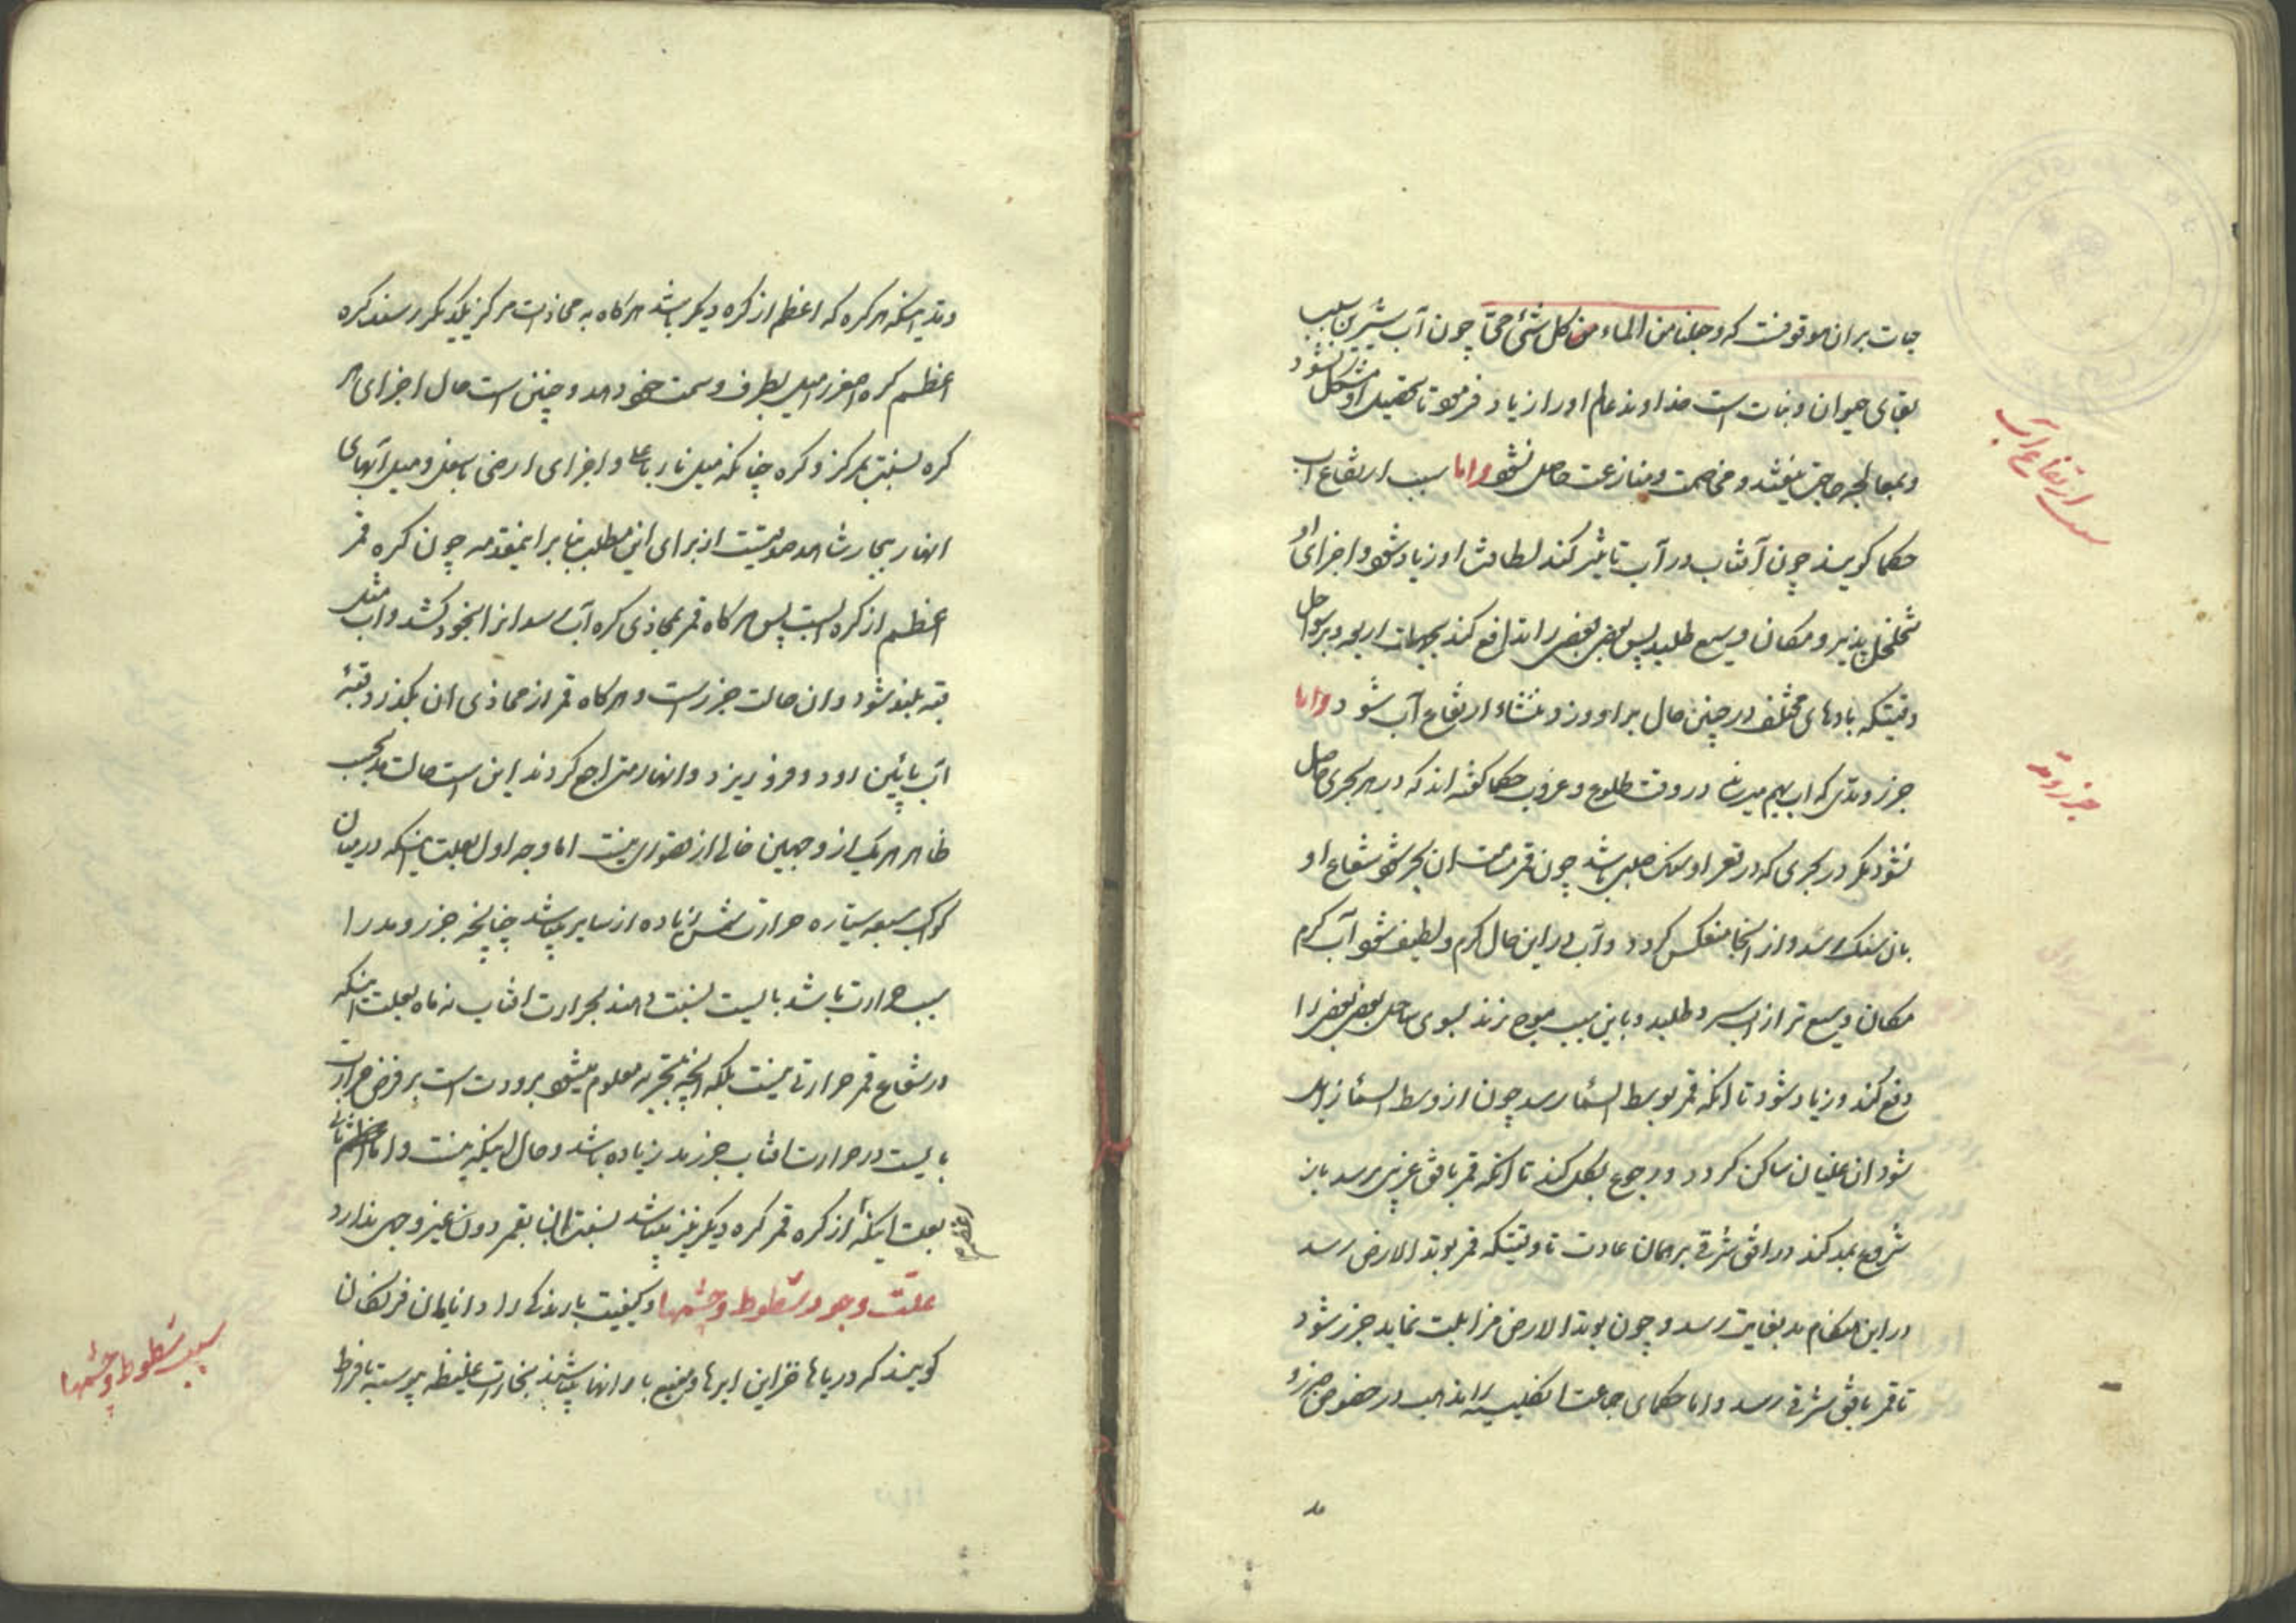 حیات بر ان موقوفست که و جعلنا من الماء من کل شئ حیّ چون آب شیرین سبب
بقای حیوان و نبات است خداوند عالم او را زیاد فرمود تا تحصیل او مشکل نشود
و بمعالجه حاجت نیفتد و مخاصمت و منازعت حاصل نشود واما سبب ارتفاع آب
سبب ارتفاع آب
حکما کویند چون آفتاب در آب تاثیر کند لطافت او زیاد شود و اجزای او
تخلخل پذیرد و مکان وسیع طلبد پس بعض بعض را تدافع کند بجهات اربعه و بر سواحل
وقتیکه بادهای مختلف در چنین حال بر او وزد و منشاء ارتفاع آب شود واما
جزر و مدی که اب بهم میرساند در وقت طلوع و غروب حکما کفته اند که در هر بحری حاصل
جزر و مد
نشود مکر در بحری که در قعر او سنک صلب باشد چون قمر مسامت ان بحر شود شعاع او
بان سنک رسد و از انجا منعکس کردد و آب در این حال کرم و لطیف شود آب کرم
مکان وسیع تر از اب سرد طلبد و باین سبب موج زند بسوی ساحل بعض بعض را
دفع کند و زیاد شود تا انکه قمر بوسط السماء رسد چون از وسط السماء زایل
شود ان غلیان ساکن کردد و رجوع بکل کند تا انکه قمر بافق غربی رسد باز
شروع بمد کند در افق شرقی بر همان عادت تا وقتیکه قمر بوتد الارض رسد
در این هنکام مد بغایت رسد و چون بوتد الارض مزایلت نماید جزر شود
تا قمر بافق شرقی رسد و اما حکمای جماعت انکلیسیه را مذهب در خصوص جزر و
مد
و مد اینکه هر کره که اعظم از کره دیکر باشد هر کاه به محاذات مرکز یکدیکر رسند کره
اعظم کره اصغر را میل بطرف و سمت خود دهد و چنین است حال اجزای هر
کره بنسبت بمرکز و کره چنانکه میل نار باعلا و اجزای ارضی باسفل و میل آبهای
انهار ببحار شاهد صدقیست از برای این مطلب بنا بر اینمقدمه چون کره قمر
اعظم از کره آبست پس هر کاه قمر محاذی کره آب رسد انرا بخود کشد و آب مثل
قبه بلند شود و ان حالت جزر است و هر کاه قمر از محاذی ان بکذرد قبهٔ
آب پائین اود و فرو ریزد و انهار متراجع کردند این است حالت مد بحسب
ظاهر هر یک از وجهین خالی از قصوری نیست اما وجه اول بعلت اینکه در میان
کواکب سبعه سیاره حرارت شمس زیاده از سایر میباشد چنانچه جزر و مد را
سبب حرارت باشد بایست نسبت دهند بحرارت افتاب نه ماه بعلت اینکه
در شعاع قمر حرارتی نیست بلکه انچه بتجربه معلوم میشود برودت است بر فرض حرارت
بایست در حرارت افتاب جزر و مد زیاده باشد و حال اینکه نیست و اما ثانی
بعلت اینکه از کره قمر کره دیکر نیز میباشد نسبت ان بقمر دون غیر وجهی ندارد
اعظم
علت وجود شطوط و چشمها و کیفیت بارندکی را دانایان فرنکان
سبب شطوط و چشمها
کویند که دریاها خزاین ابرها و منبع بارانها میباشند بخارات غلیظه پیوسته بافراط